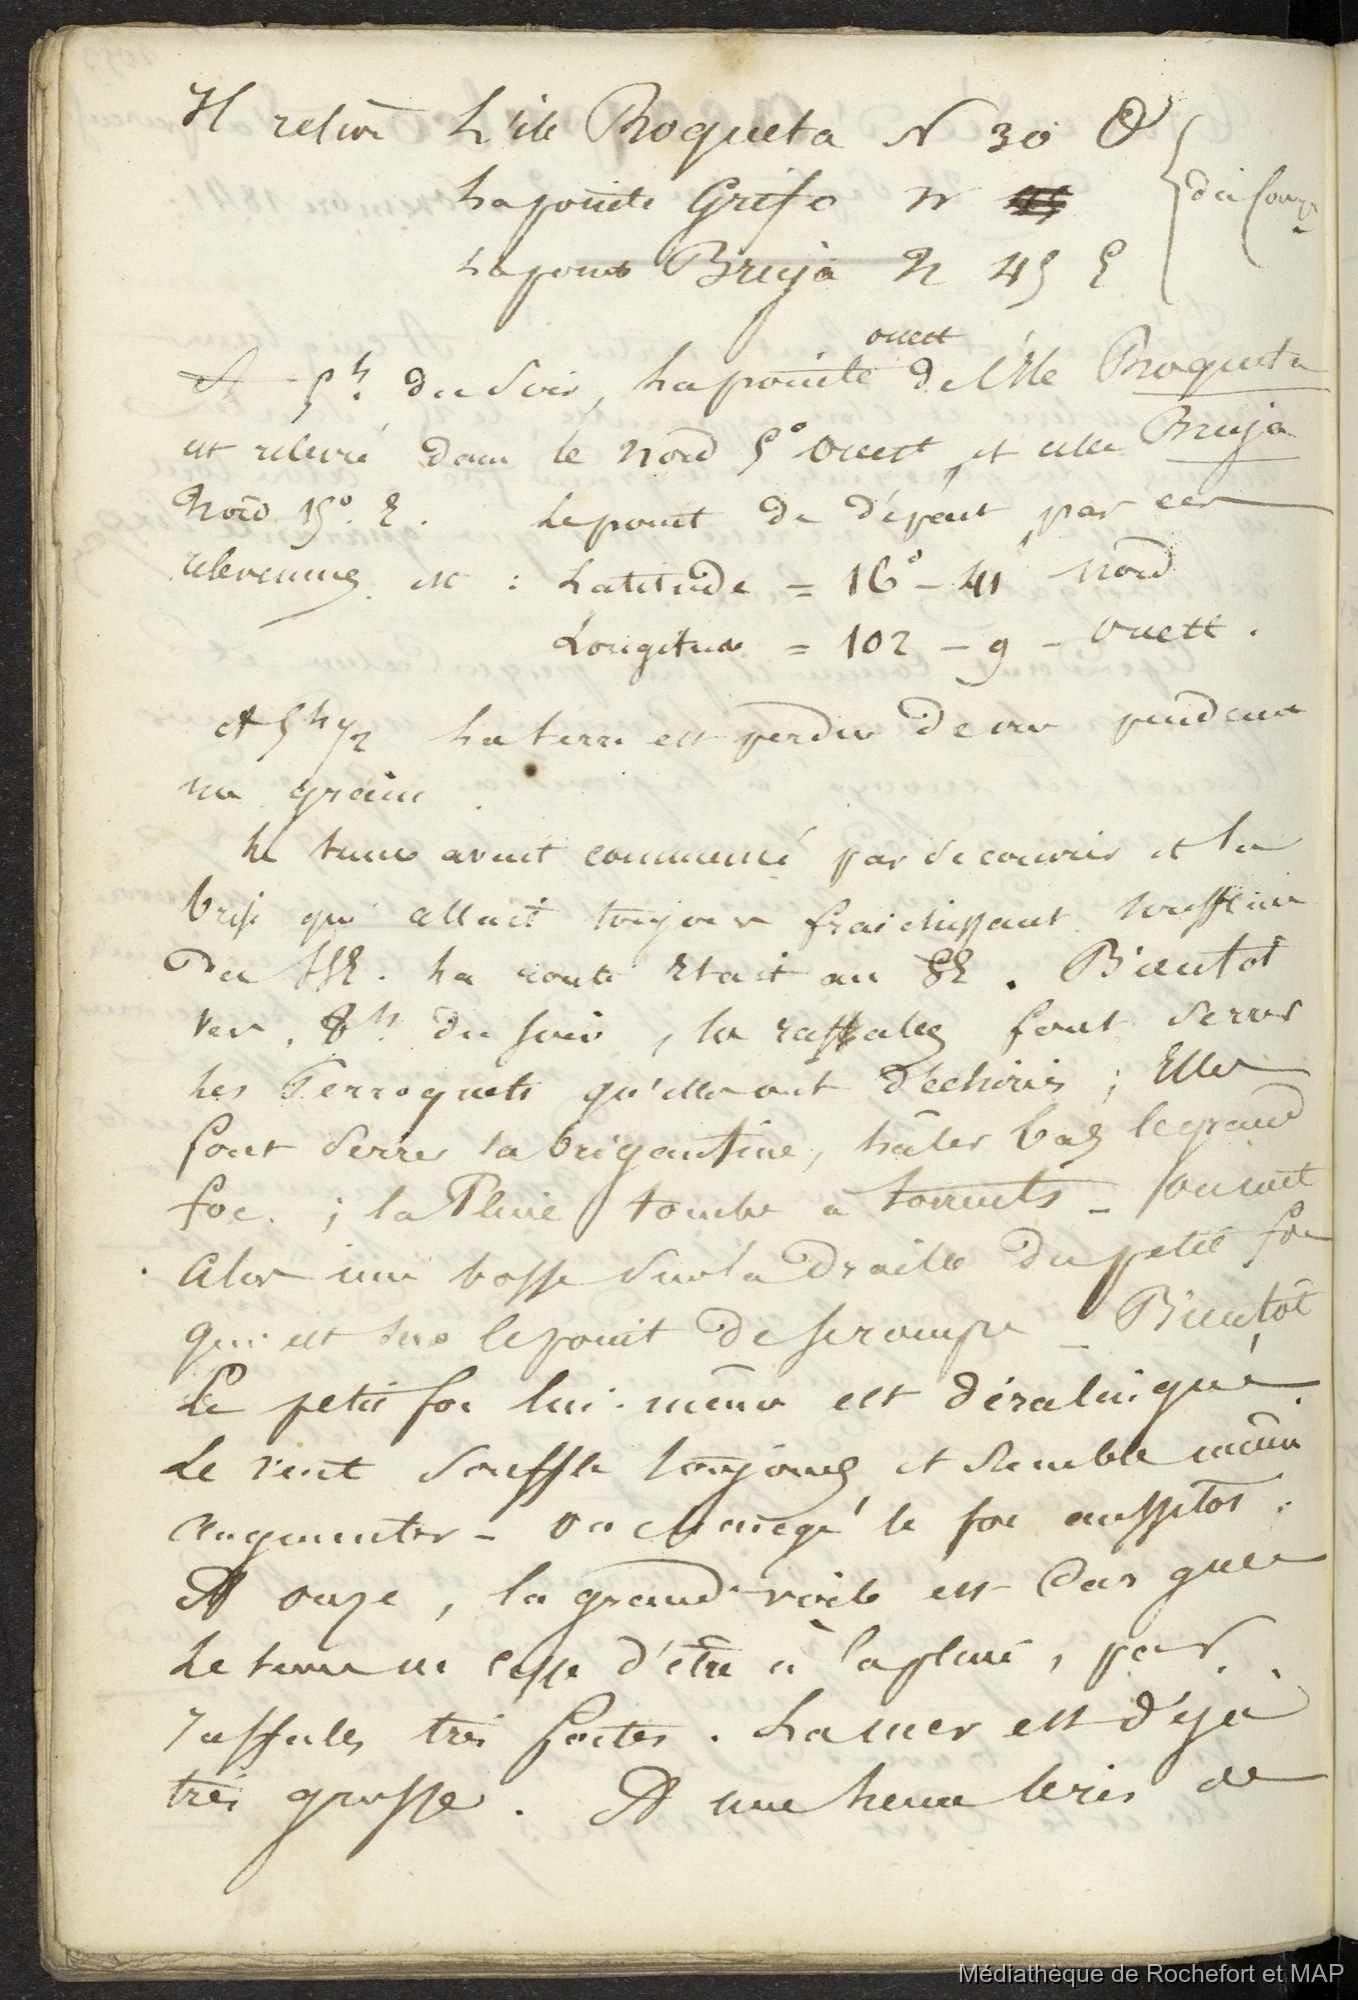 Il relève L'île Roqueta N 30 O
La pointe Grifo N
La pointe Bruja N 45 E
du Comp
ouest
A 5h. du Soir, La pointe de l'Ile Roqueta
est relevée dans le Nord 5° Ouest, et celle Bruja
Nord 15°. E. Le point de départ par ces
relevemens est : Latitude = 16° - 41' Nord
Longitude = 102 - 9 - Ouest.
A 5h 1/2 La terre est perdue de vue pendant
un grain.
Le temps avait commencé par se couvrir et la
brise qui allait toujours fraichissant
du SSE. La route Etait au SE. Bientôt
vers 8h. du soir, les raffales font serrer
Les Perroquets qu'elles ont déchirés ; Elles
font Serrer la brigantine, hâler bas le grand
foc. ; la Pluie tombe à torrents - on met
alors une bosse sur la draille du petit foc
qui est sur le point de se rompre - Bientôt
Le petit foc lui-même est déralingué
Le vent souffle toujours et semble même
augmenter - on change le foc aussitôt.
A onze, la grand-voile est carguée
Le tems ne cesse d'être à la pluie, par
raffales très fortes. La mer est déjà
très grosse. A une heure le ris de